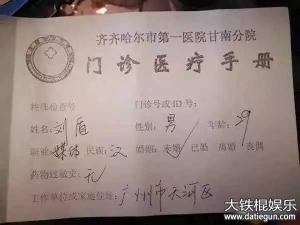 齐齐哈尔市第一医院甘南分院
门诊医疗手册
特殊检查号 门诊号或ID号:
姓名: 刘盾 性别: 男 年龄: 29
职业: 媒体 民族: 汉 婚姻: 未婚 已婚 离婚 丧偶
药物过敏史: 无
工作单位或家庭住址: 广州市天河区
大铁棍娱乐
www.datiegun.com